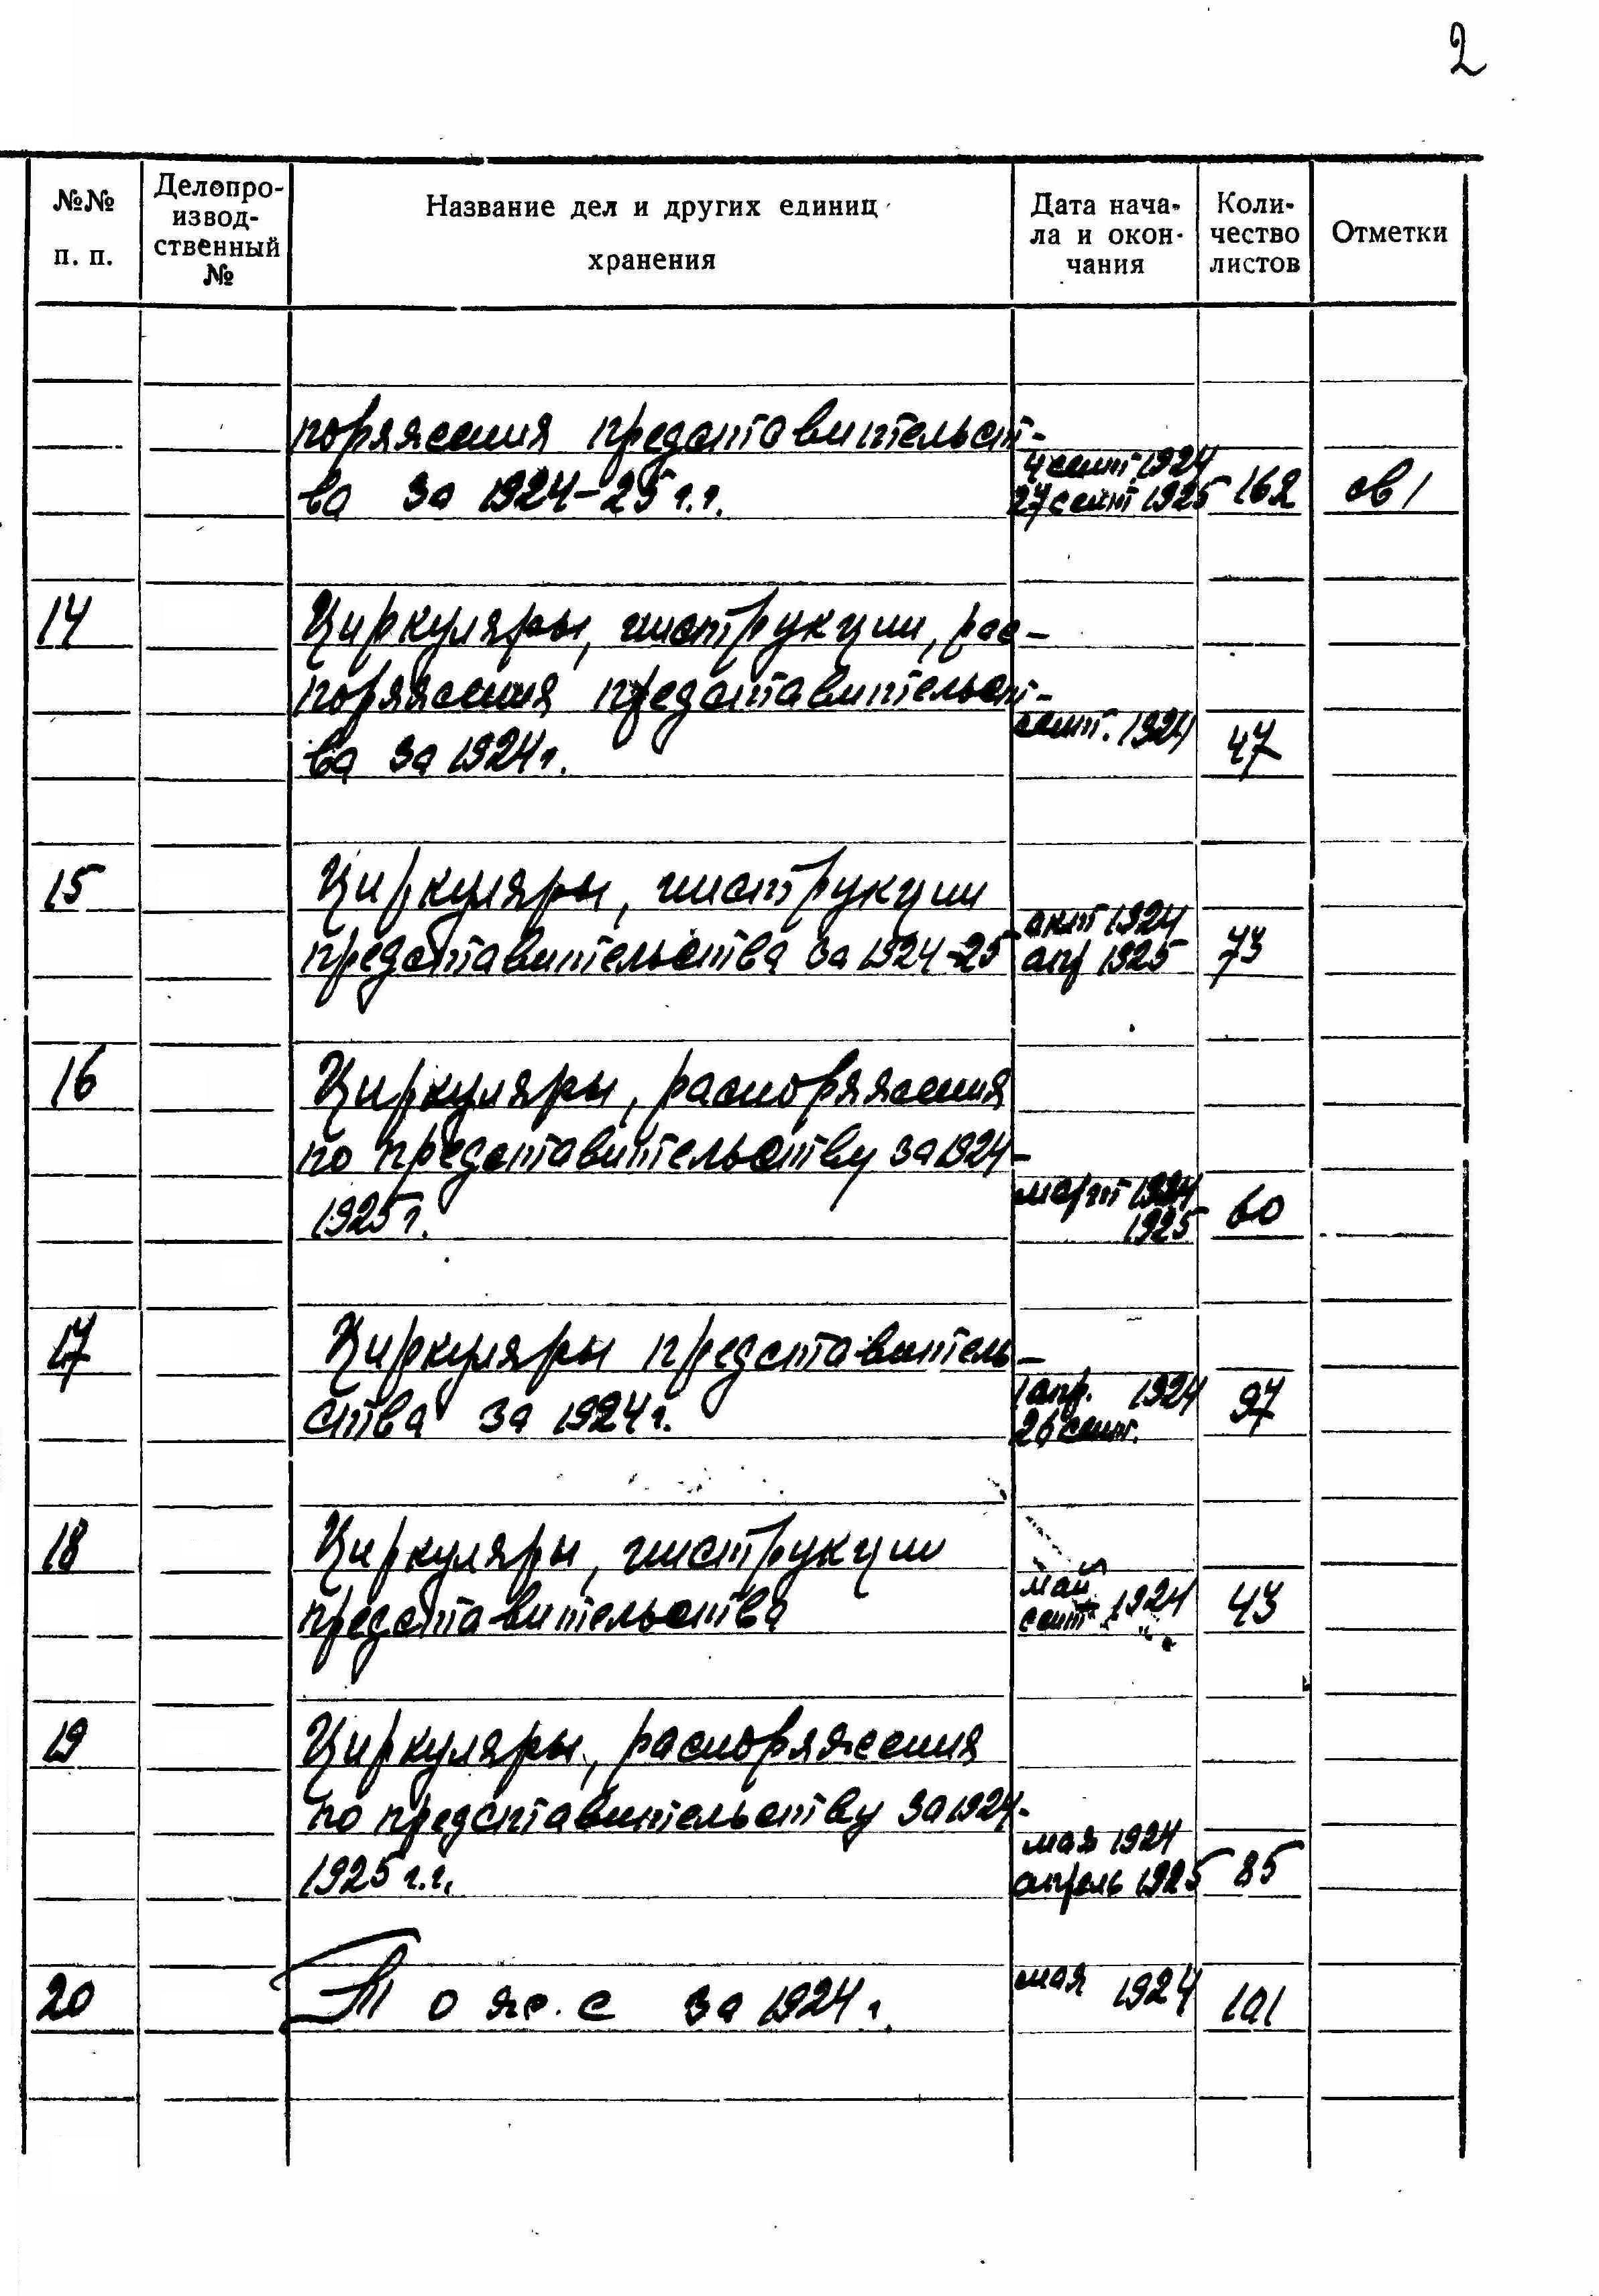 2
№№ п. п.
Делопро-
извод-
ственный
№
Название дел и других единиц
хранения
Дата нача-
ла и окон-
чания
Коли-
чество
листов
Отметки
поряжения представительст-
4 сент. 1924
ва за 1924-25 г.г.
27 сент 1925 162 св 1
14 Циркуляры, инструкции, рас-
поряжения представительст-
сент. 1924
ва за 1924 г.
47
15 Циркуляры, инструкции
окт 1924
представительства за 1924-25 апр 1925 73
16 Циркуляры, распоряжения
по представительству за 1924-
март 1924
1925 г. 1925 60
17 Циркуляры представитель-
1 апр. 1924
ства за 1924 г. 97
26 сент.
18 Циркуляры, инструкции
май
представительства сент 1924 43
19 Циркуляры, распоряжения
по представительству за 1924-
мая 1924
1925 г.г. апрель 1925 85
20 То же за 1924 г. мая 1924 101